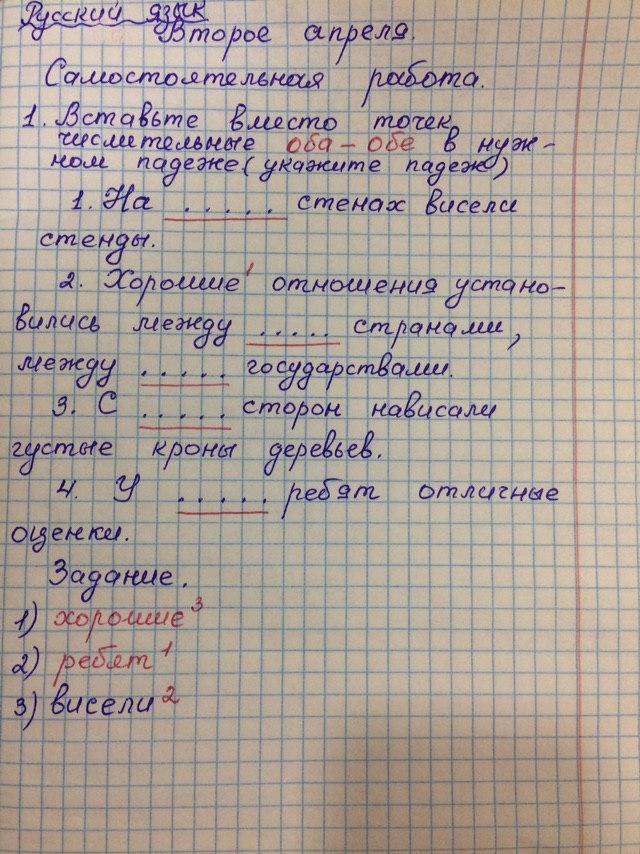 Русский язык
Второе апреля.
Самостоятельная работа.
1. Вставьте вместо точек
числительные оба - обе в нуж-
ном падеже (укажите падеж)
1. На ..... стенах висели
стенды.
2. Хорошие¹ отношения устано-
вились между ..... странами,
между ..... государствами.
3. С ..... сторон нависали
густые кроны деревьев.
4. У ..... ребят отличные
оценки.
Задание.
1) хорошие³
2) ребят¹
3) висели²